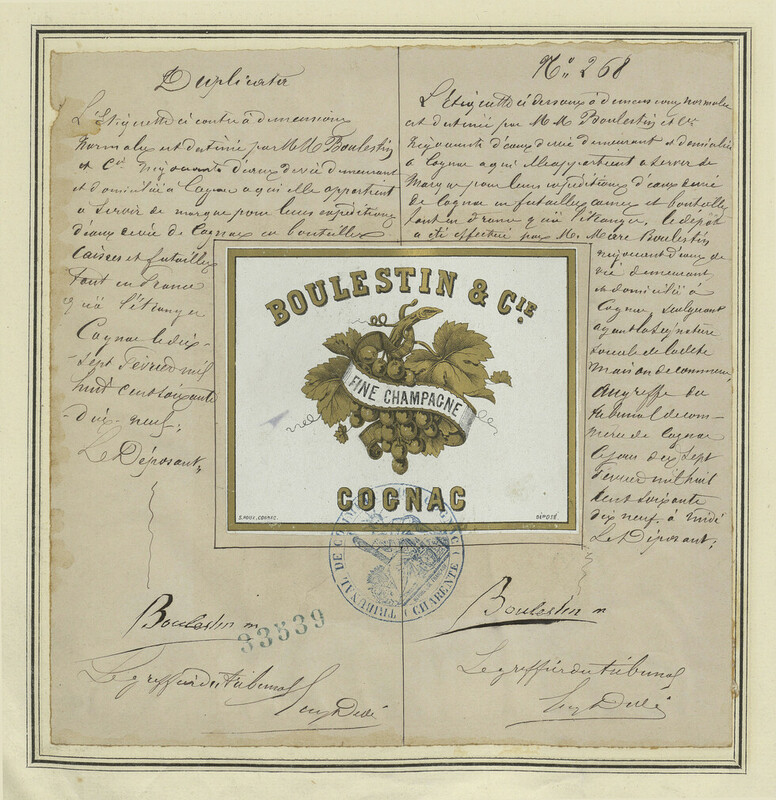 Duplicata
L'Etiquette ci contre à dimensions
Normales est destinée par MM Boulestin
et Cie Négociants d'eaux de vie demeurant
et domiciliés à Cognac à qui elle appartient
à servir de marque pour leurs expéditions
d'eaux de vie de Cognac en bouteilles
Caisses et futailles
tant en France
qu'à l'étranger
Cognac le dix-
sept Février mil
huit cent soixante
-dix-neuf.
Le Déposant,
Boulestin
33539
Le greffier du tribunal
No 268
L'Etiquette ci dessous à dimensions normales
est destinée par MM Boulestin et Cie
Négociants d'eaux de vie demeurant et domiciliés
à Cognac à qui elle appartient à servir de
Marque pour leurs expéditions d'eaux de vie
de Cognac en futailles caisses et bouteilles
tant en France qu'à l'étranger. le dépôt
a été effectué par M. Boulestin
négociant d'eaux de
vie demeurant
et domicilié à
Cognac, seul gérant
ayant la signature
sociale de la dite
Maison de commerce,
au greffe du
tribunal de com-
merce de Cognac
le jour dix sept
Février mil huit
cent soixante
dix neuf, à midi
Le Déposant,
Boulestin
Le greffier du tribunal
BOULESTIN & CIE.
FINE CHAMPAGNE
COGNAC
COGNAC.
DÉPOSÉ.
TRIBUNAL DE COMMERCE DE COGNAC (CHARENTE)